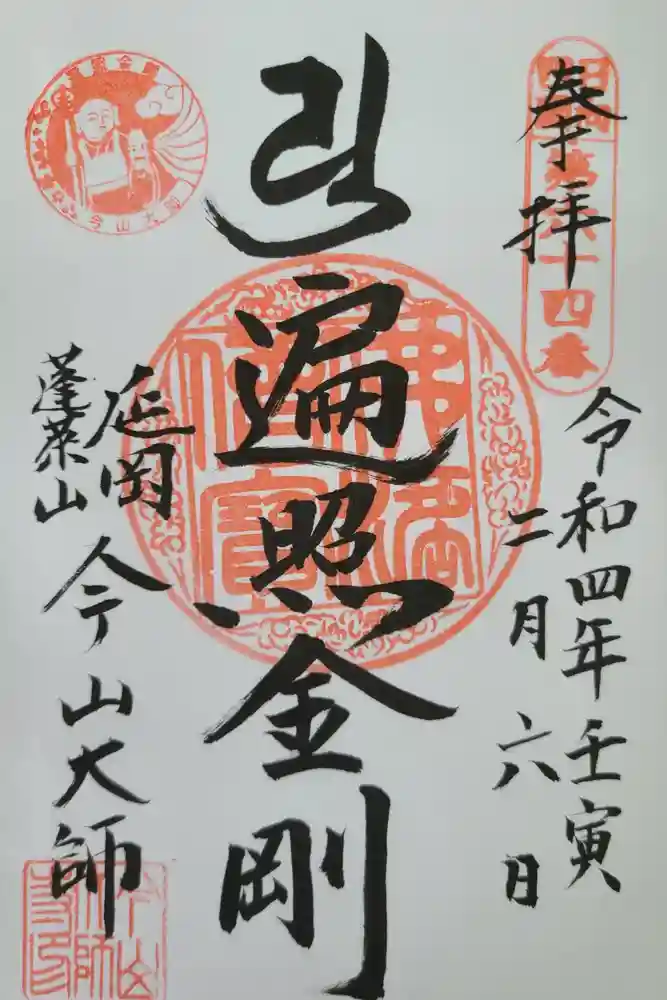 奉拝
第六十四番
令和四年壬寅
二月六日
遍照金剛
延岡
蓬莱山
今山大師
今山大師